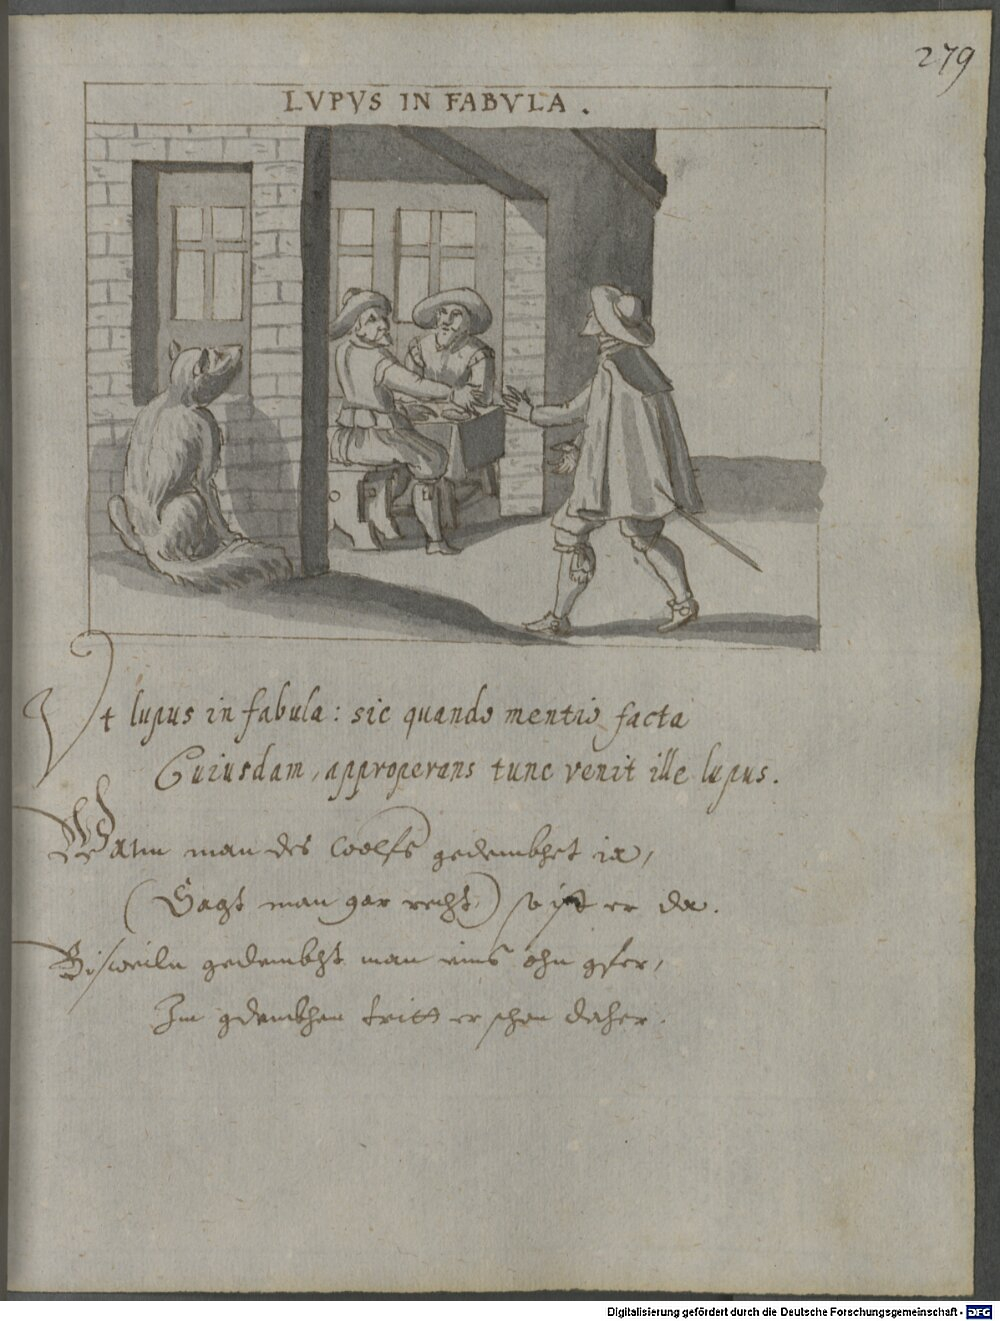 279
LVPVS IN FABVLA.
Vt lupus in fabula: sic quando mentio facta
Cuiusdam, approperans tunc venit ille lupus.
Wann man des Wolfs gedenkhet
(Sagt man gar recht) so ist er da.
Bisweiln gedenkht man eins ohn gfer,
Im gdenkhen tritt er schon daher.
Digitalisierung gefördert durch die Deutsche Forschungsgemeinschaft - DFG